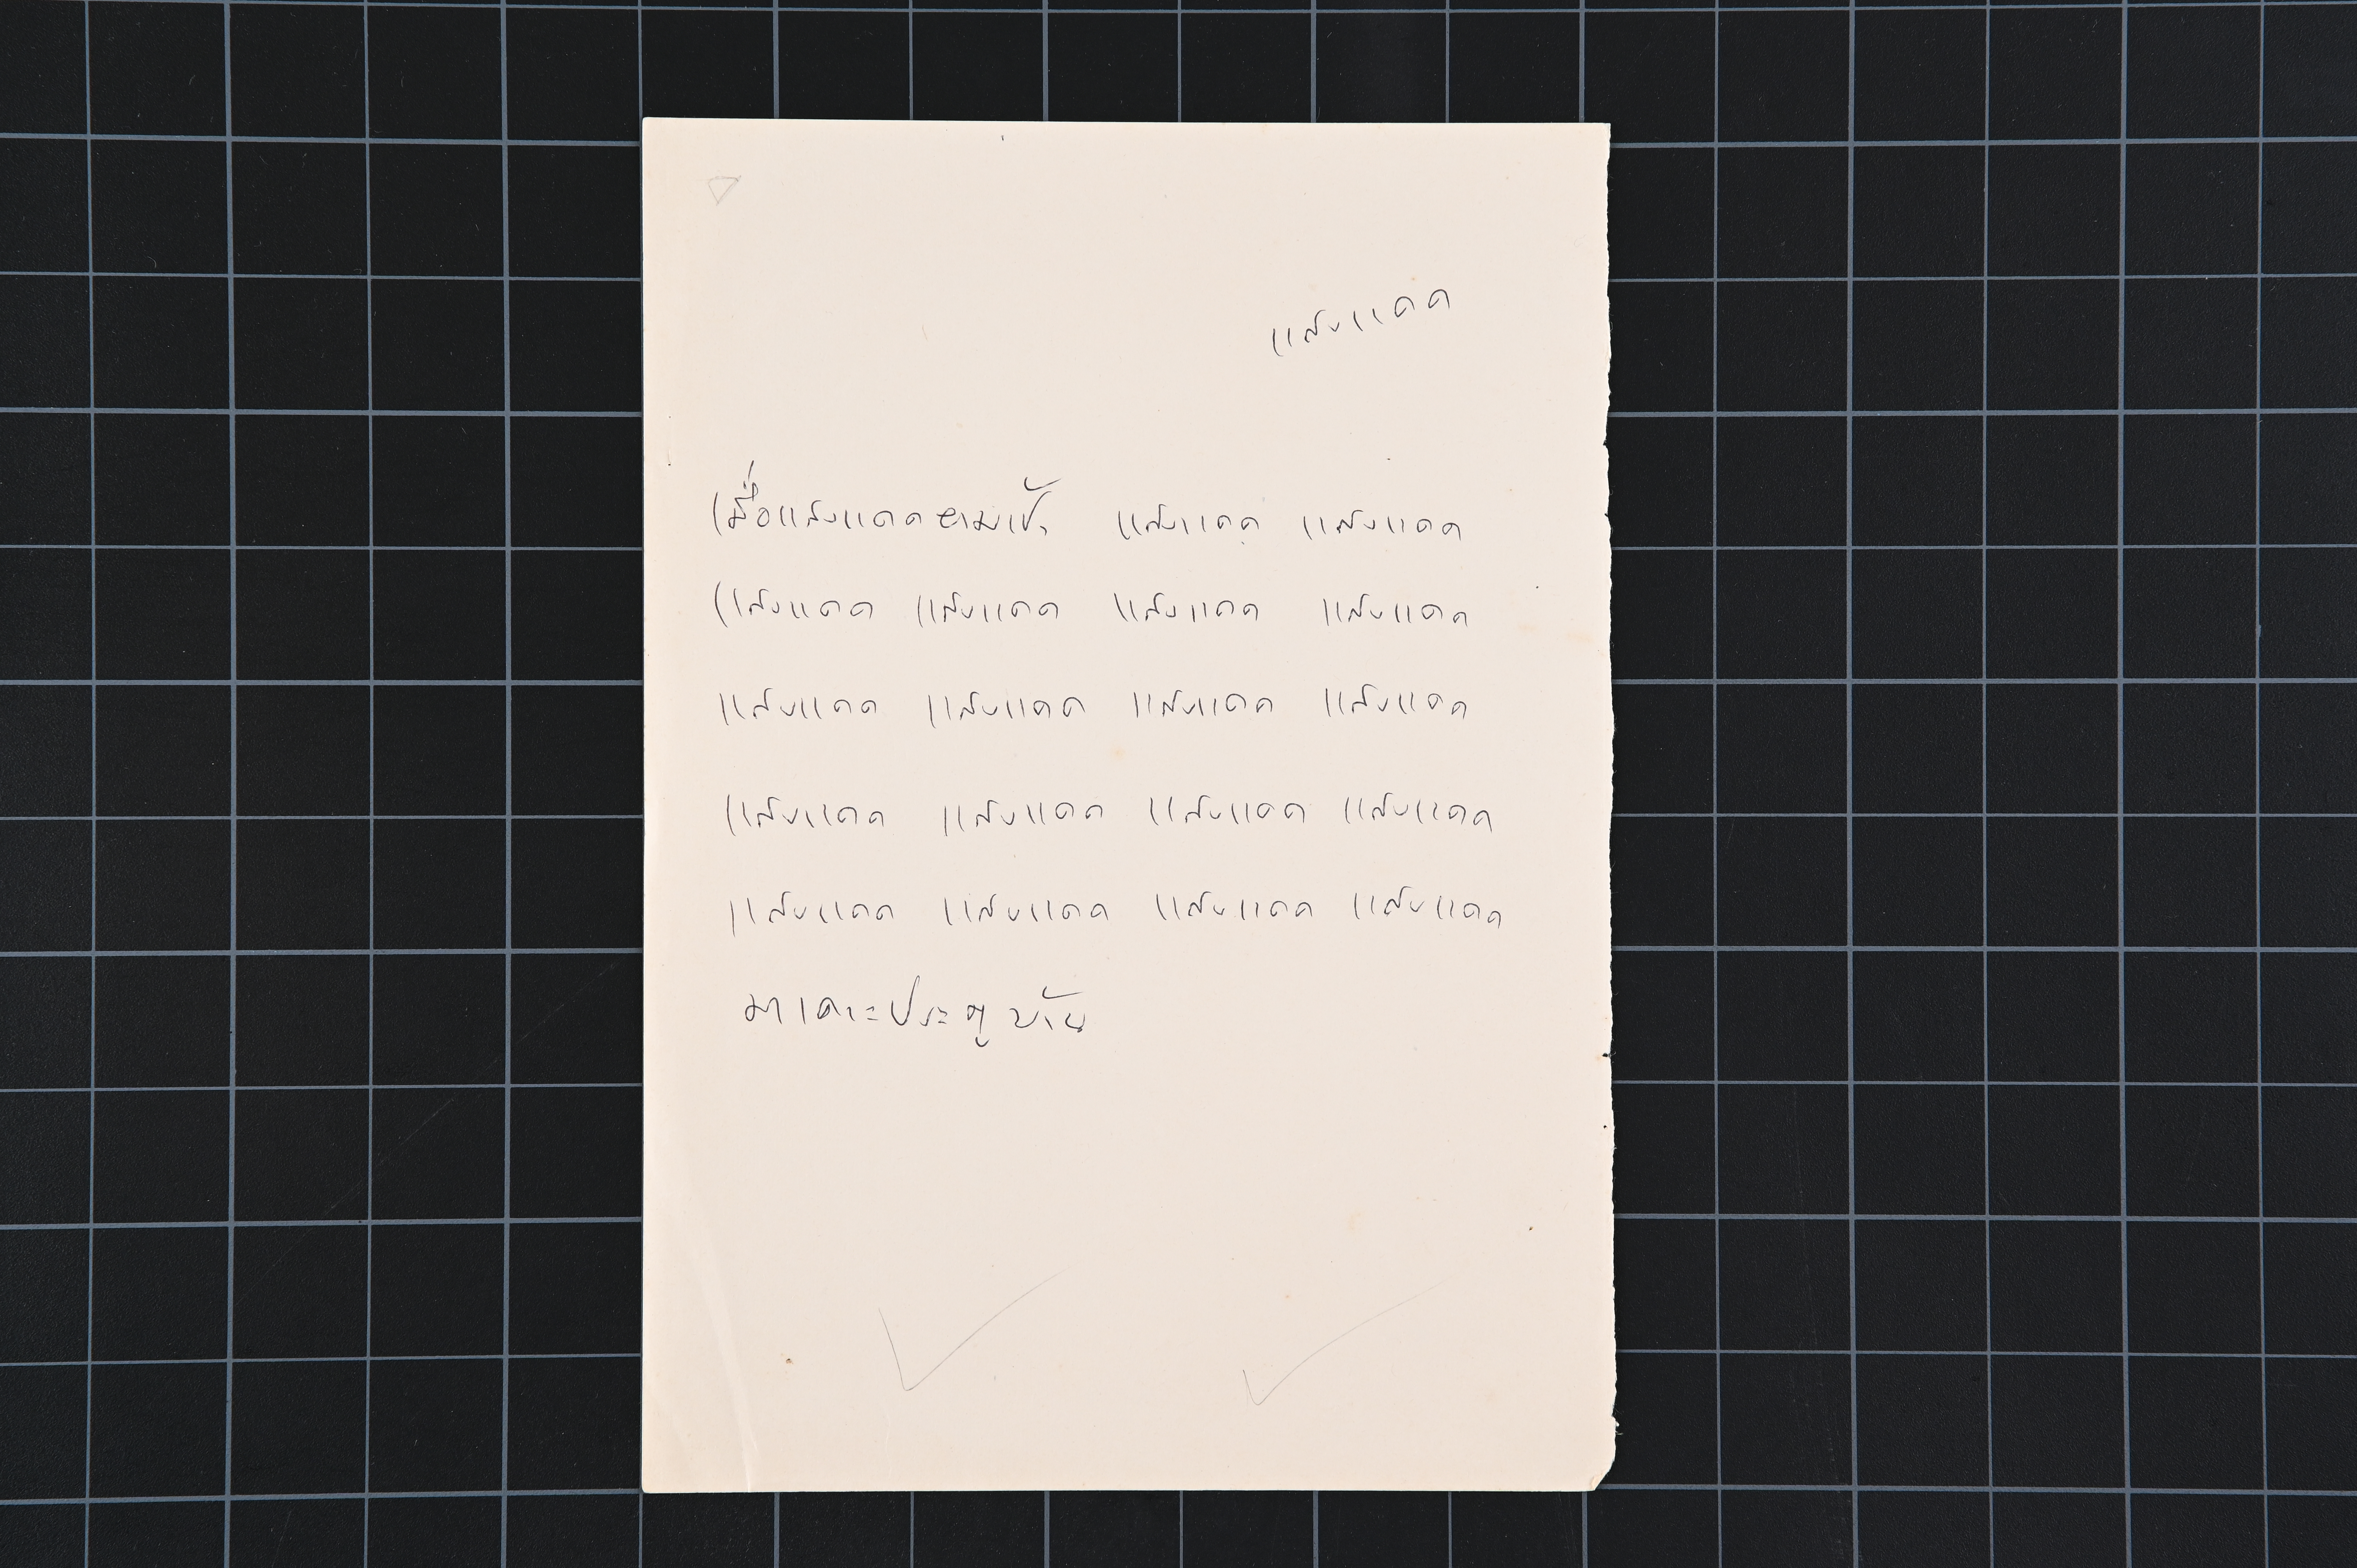 แสงแดด
เมื่อแสงแดดยามเช้า แสงแดด แสงแดด
แสงแดด แสงแดด แสงแดด แสงแดด
แสงแดด แสงแดด แสงแดด แสงแดด
แสงแดด แสงแดด แสงแดด แสงแดด
แสงแดด แสงแดด แสงแดด แสงแดด
มาเคาะประตูบ้าน